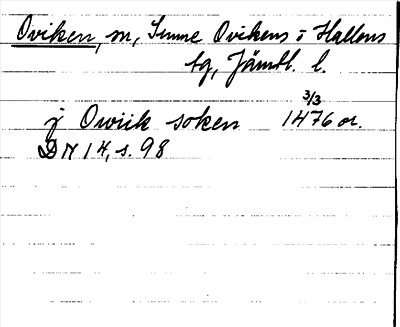 Oviken, sn, Sunne Ovikens o Hallens
tg, Jämtl. l.
j Owiik soken 3/3 1476 or.
DN 14, s. 98